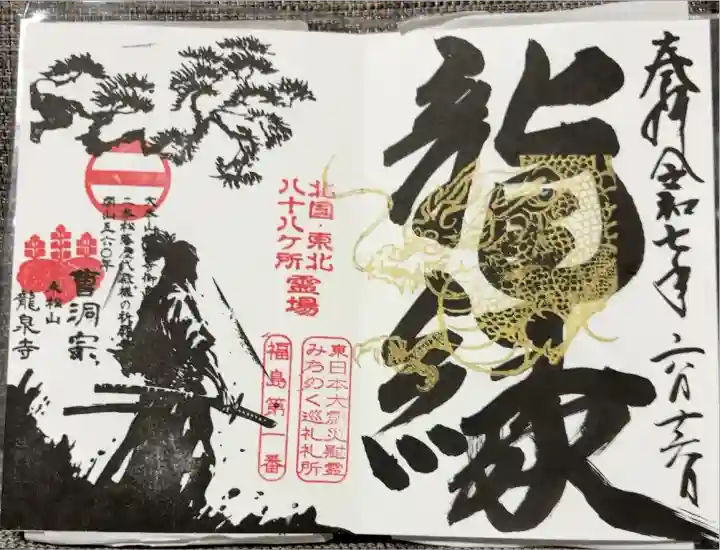 奉拝 令和七年 六月十六日
龍縁
北国・東北
八十八ケ所霊場
東日本大震災慰霊
みちのく巡礼札所
福島第一番
二本松藩
開山五六〇年
曹洞宗
龍泉寺